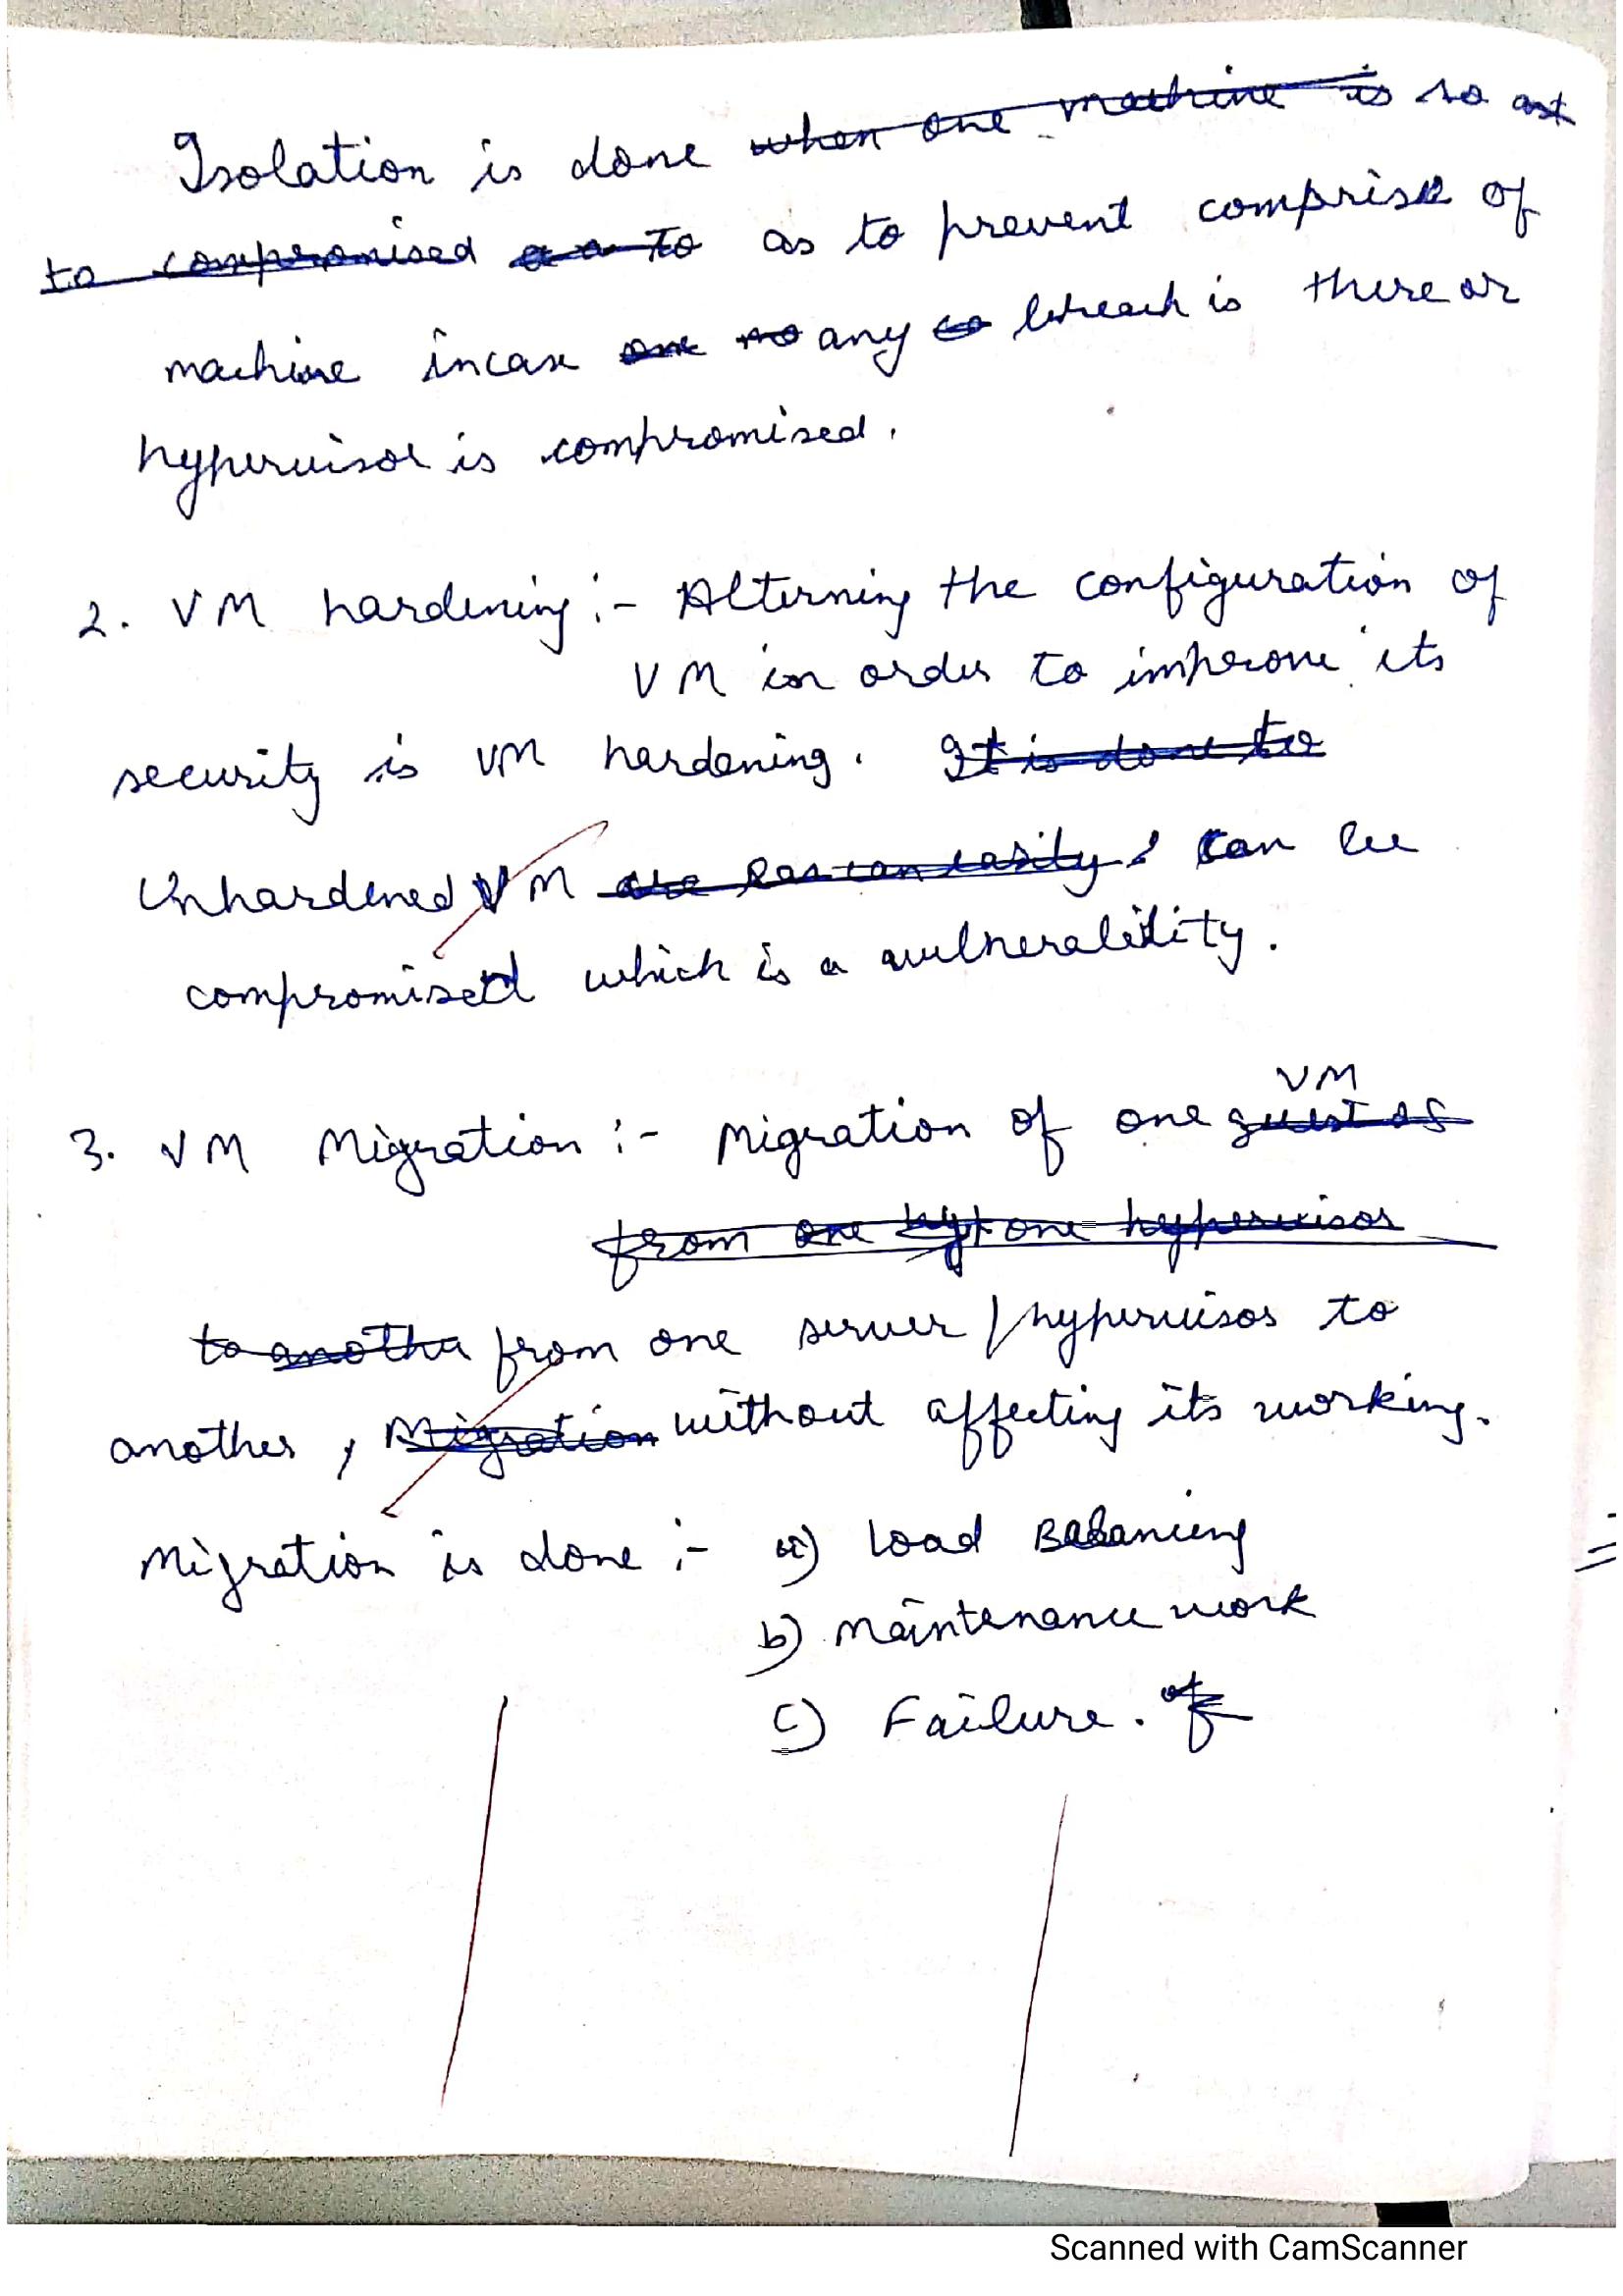 Isolation is done when one machine is so ast
to compromised a a To as to prevent comprise of
machine incase one no any co breach is there or
hypervisor is compromised.
2. VM hardening :- Alterning the configuration of
VM in order to improve its
security is VM hardening. It is done to
Unhardened VM are can easily can be
compromised which is a vulnerability.
VM
3. VM Migration :- Migration of one guest os
from one hyp one hypervisor
to anothe from one server / hypervisor to
another, Migration without affecting its working.
Migration is done :- a) Load Balancing
b) Maintenance work
c) Failure. of
Scanned with CamScanner